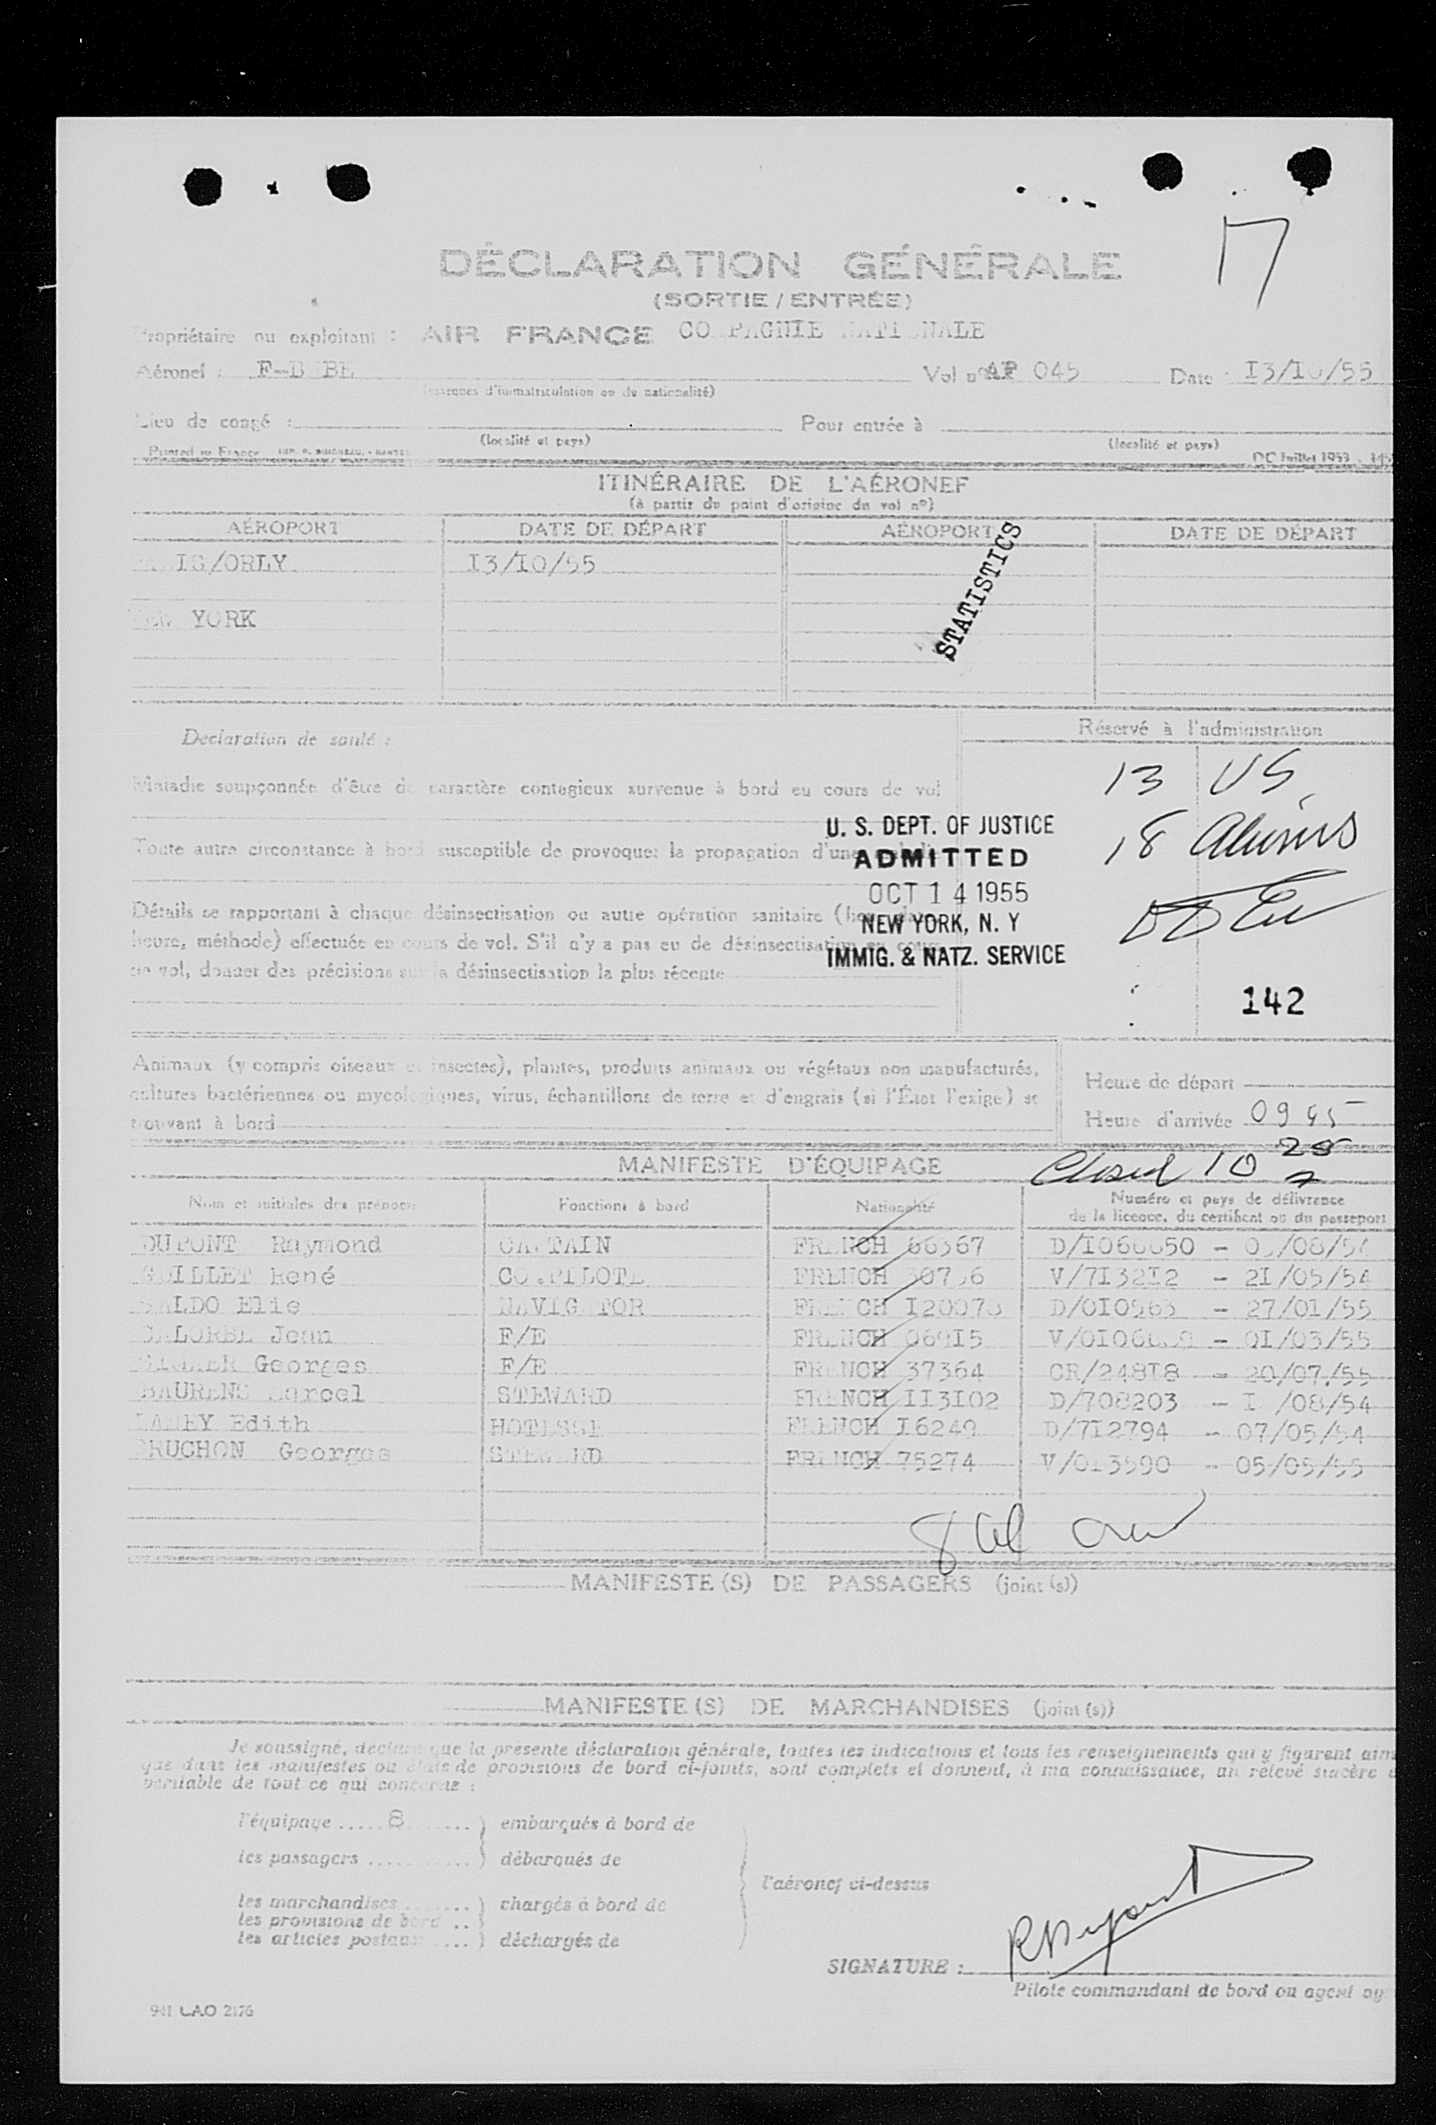 17
DÉCLARATION GÉNÉRALE
(SORTIE / ENTRÉE)
Propriétaire ou exploitant : AIR FRANCE COMPAGNIE NATIONALE
Aéronef : Vol n° AF 045 Date : 13/10/55
(marques d'immatriculation ou de nationalité)
Lieu de congé : Pour entrée à
(localité et pays) (localité et pays)
Printed in France DC Juillet 1953
ITINÉRAIRE DE L'AÉRONEF
(à partir du point d'origine du vol n°)
AÉROPORT DATE DE DÉPART AÉROPORT DATE DE DÉPART
PARIS/ORLY 13/10/55
STATISTICS
NEW YORK
Déclaration de santé :
Réservé à l'administration
Maladie soupçonnée d'être de caractère contagieux survenue à bord eu cours de vol
13 US
Toute autre circonstance à bord susceptible de provoquer la propagation d'une maladie
18 Aliens
U. S. DEPT. OF JUSTICE
ADMITTED
OCT 14 1955
NEW YORK, N. Y
IMMIG. & NATZ. SERVICE
Détails se rapportant à chaque désinsectisation ou autre opération sanitaire
heure, méthode) effectuée en cours de vol. S'il n'y a pas eu de désinsectisation en cours
de vol, donner des précisions sur la désinsectisation la plus récente
142
Animaux (y compris oiseaux et insectes), plantes, produits animaux ou végétaux non manufacturés,
cultures bactériennes ou mycologiques, virus, échantillons de terre et d'engrais (si l'État l'exige) se
trouvant à bord
Heure de départ
Heure d'arrivée 0945
MANIFESTE D'ÉQUIPAGE
Closed 10 25
Nom et initiales des prénoms Fonctions à bord Nationalité Numéro et pays de délivrance
de la licence, du certificat ou du passeport
DUPONT Raymond CAPTAIN FRENCH 66367
René CO.PILOTE FRENCH V/713212 - 21/05/54
Elie NAVIGATOR FRENCH - 27/01/55
Jean F/E FRENCH 06915 - 01/03/55
Georges F/E FRENCH 37364 CR/24818 - 20/07/55
BAURENS Marcel STEWARD FRENCH 113102 D/708203 - /08/54
Edith HOTESSE FRENCH 16249 D/712794 - 07/05/54
Georges STEWARD FRENCH 75274 - 05/05/55
8
MANIFESTE (S) DE PASSAGERS (joint (s))
MANIFESTE (S) DE MARCHANDISES (joint (s))
Je soussigné, déclare que la présente déclaration générale, toutes les indications et tous les renseignements qui y figurent ainsi
que dans les manifestes ou états de provisions de bord ci-joints, sont complets et donnent, à ma connaissance, un relevé sincère
véritable de tout ce qui concerne :
l'équipage ..... 8 ..... ) embarqués à bord de
les passagers ........... ) débarqués de
l'aéronef ci-dessus
les marchandises ....... ) chargés à bord de
les provisions de bord .. )
les articles postaux .... ) déchargés de
SIGNATURE : RDupont
Pilote commandant de bord ou agent
941 CAO 2176